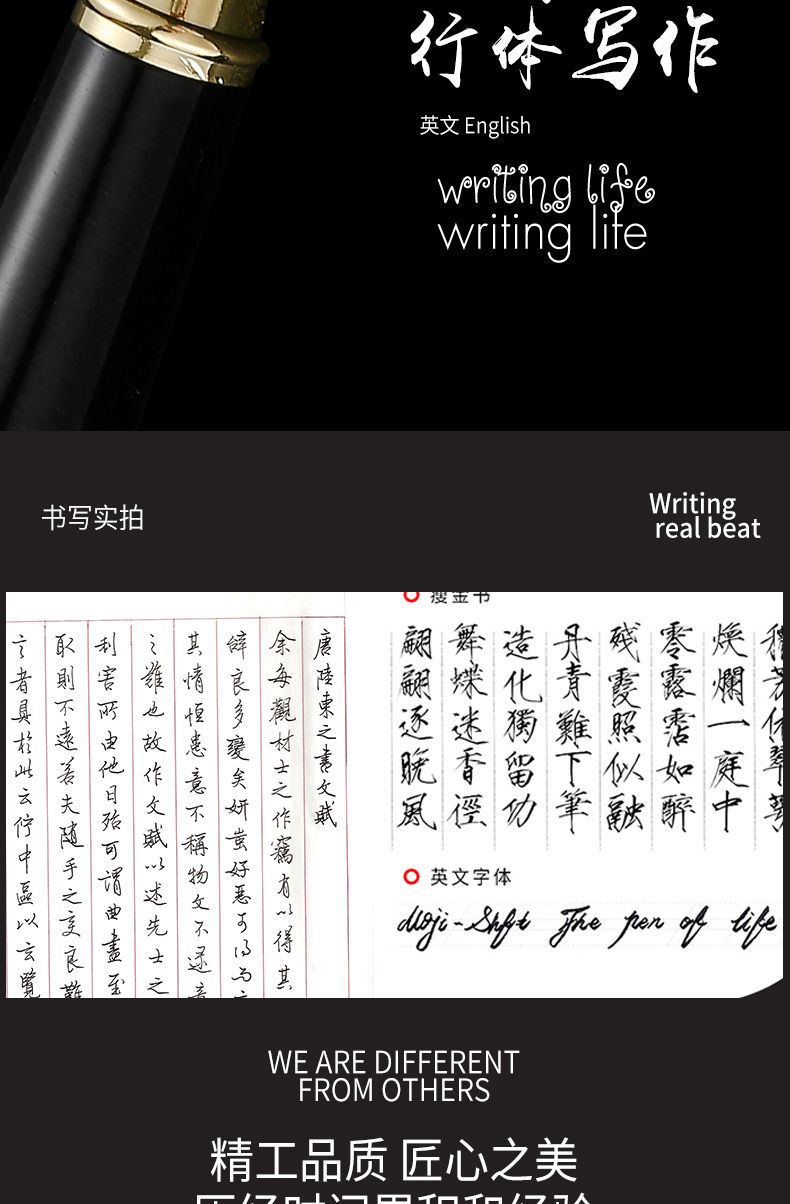 行体写作
英文 English
writing life
writing life
书写实拍
Writing
real beat
唐陸柬之書文賦
余每觀材士之作竊有以得其
辭良多變矣妍蚩好惡可得而言
其情恒患意不稱物文不逮意
之難也故作文賦以述先士之
利害所由他日殆可謂曲盡至
取則不遠若夫隨手之變良難
言者具於此云佇中區以玄覽
瘦金书
穠芳依翠萼
煥爛一庭中
零露霑如醉
殘霞照似融
丹青難下筆
造化獨留功
舞蝶迷香徑
翩翩逐晚風
英文字体
Moji-Shift The pen of life
WE ARE DIFFERENT
FROM OTHERS
精工品质 匠心之美
历经时间累积和经验